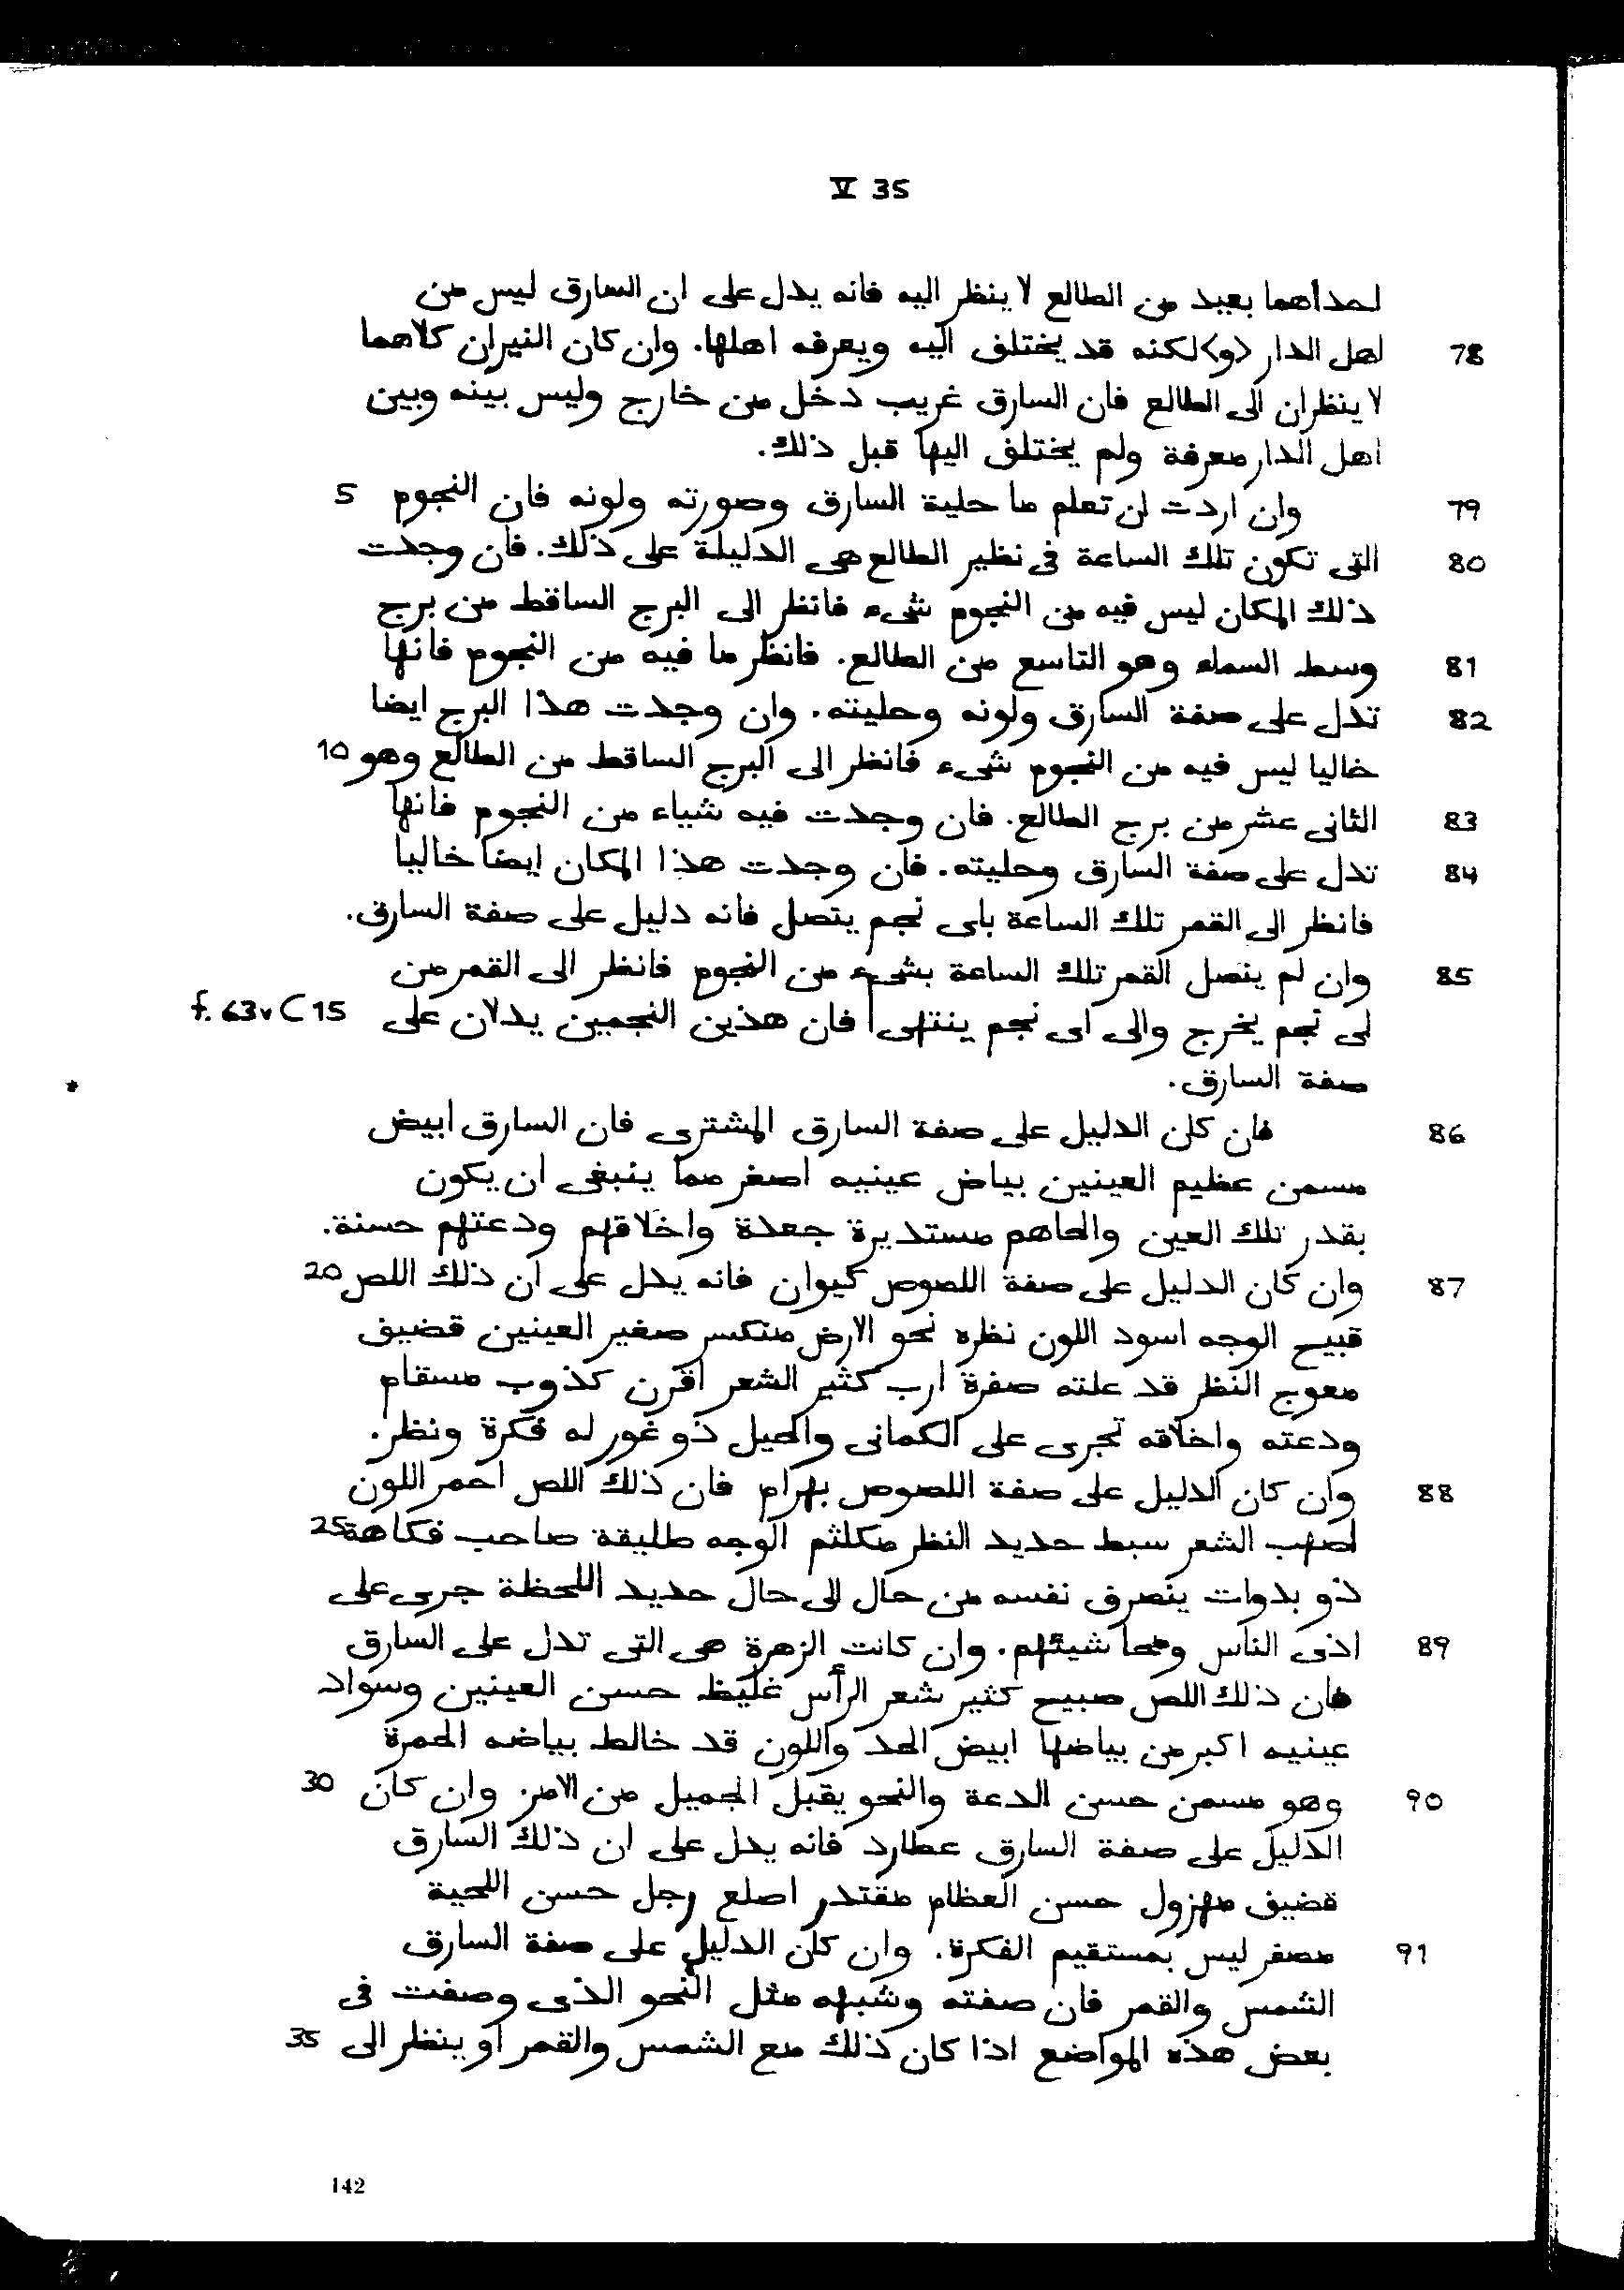 V 35
احداهما بعيد من الطالع لا ينظر اليه فانه يدل على ان السارق ليس من
78 اهل الدار <و>لكنه قد يختلف اليه ويعرفه اهلها. وان كان النيران كلاهما
لا ينظران الى الطالع فان السارق غريب دخل من خارج وليس بينه وبين
اهل الدار معرفة ولم يختلف اليها قبل ذلك.
79 وان اردت ان تعلم ما حلية السارق وصورته ولونه فان النجوم 5
80 التى تكون تلك الساعة فى نظير الطالع هى الدليلة على ذلك. فان وجدت
ذلك المكان ليس فيه من النجوم شىء فانظر الى البرج الساقط من برج
81 وسط السماء وهو التاسع من الطالع. فانظر ما فيه من النجوم فانها
82 تدل على صفة السارق ولونه وحليته. وان وجدت هذا البرج ايضا
خاليا ليس فيه من النجوم شىء فانظر الى البرج الساقط من الطالع وهو 10
83 الثانى عشر من برج الطالع. فان وجدت فيه شياء من النجوم فانها
84 تدل على صفة السارق وحليته. فان وجدت هذا المكان ايضا خاليا
فانظر الى القمر تلك الساعة باى نجم يتصل فانه دليل على صفة السارق.
85 وان لم يتصل القمر تلك الساعة بشىء من النجوم فانظر الى القمر من
اى نجم يخرج والى اى نجم ينتهى| فان هذين النجمين يدلان على 15 f. 63v C
صفة السارق. *
86 فان كان الدليل على صفة السارق المشترى فان السارق ابيض
مسمن عظيم العينين بياض عينيه اصغر مما ينبغى ان يكون
بقدر تلك العين والحاهم مستديرة جعدة واخلاقهم ودعتهم حسنة.
87 وان كان الدليل على صفة اللصوص كيوان فانه يدل على ان ذلك اللص 20
قبيح الوجه اسود اللون نظره نحو الارض منكسر صغير العينين قضيق
معوج النظر قد علته صفرة ارب كثير الشعر اقرن كذوب مسقام
ودعته واخلاقه تجرى على الكمانى والحيل ذو غور له فكرة ونظر.
88 وان كان الدليل على صفة اللصوص بهرام فان ذلك اللص احمر اللون
اصهب الشعر سبط حديد النظر مكلثم الوجه طليقة صاحب فكاهة 25
ذو بدوات ينصرف نفسه من حال الى حال حديد اللحظة جرى على
89 اذى الناس وفحا شيئهم. وان كانت الزهرة هى التى تدل على السارق
فان ذلك اللص صبيح كثير شعر الرأس غليظ حسن العينين وسواد
عينيه اكبر من بياضها ابيض الحد واللون قد خالط بياضه الحمرة
90 وهو مسمن حسن الدعة والنحو يقبل الجميل من الامر. وان كان 30
الدليل على صفة السارق عطارد فانه يدل على ان ذلك السارق
قضيف مهزول حسن العظام مقتدر اصلع رجل حسن اللحية
91 مصفر ليس بمستقيم الفكرة. وان كان الدليل على صفة السارق
الشمس والقمر فان صفته وشبهه مثل النحو الذى وصفت فى
بعض هذه المواضع اذا كان ذلك مع الشمس والقمر او ينظر الى 35
142